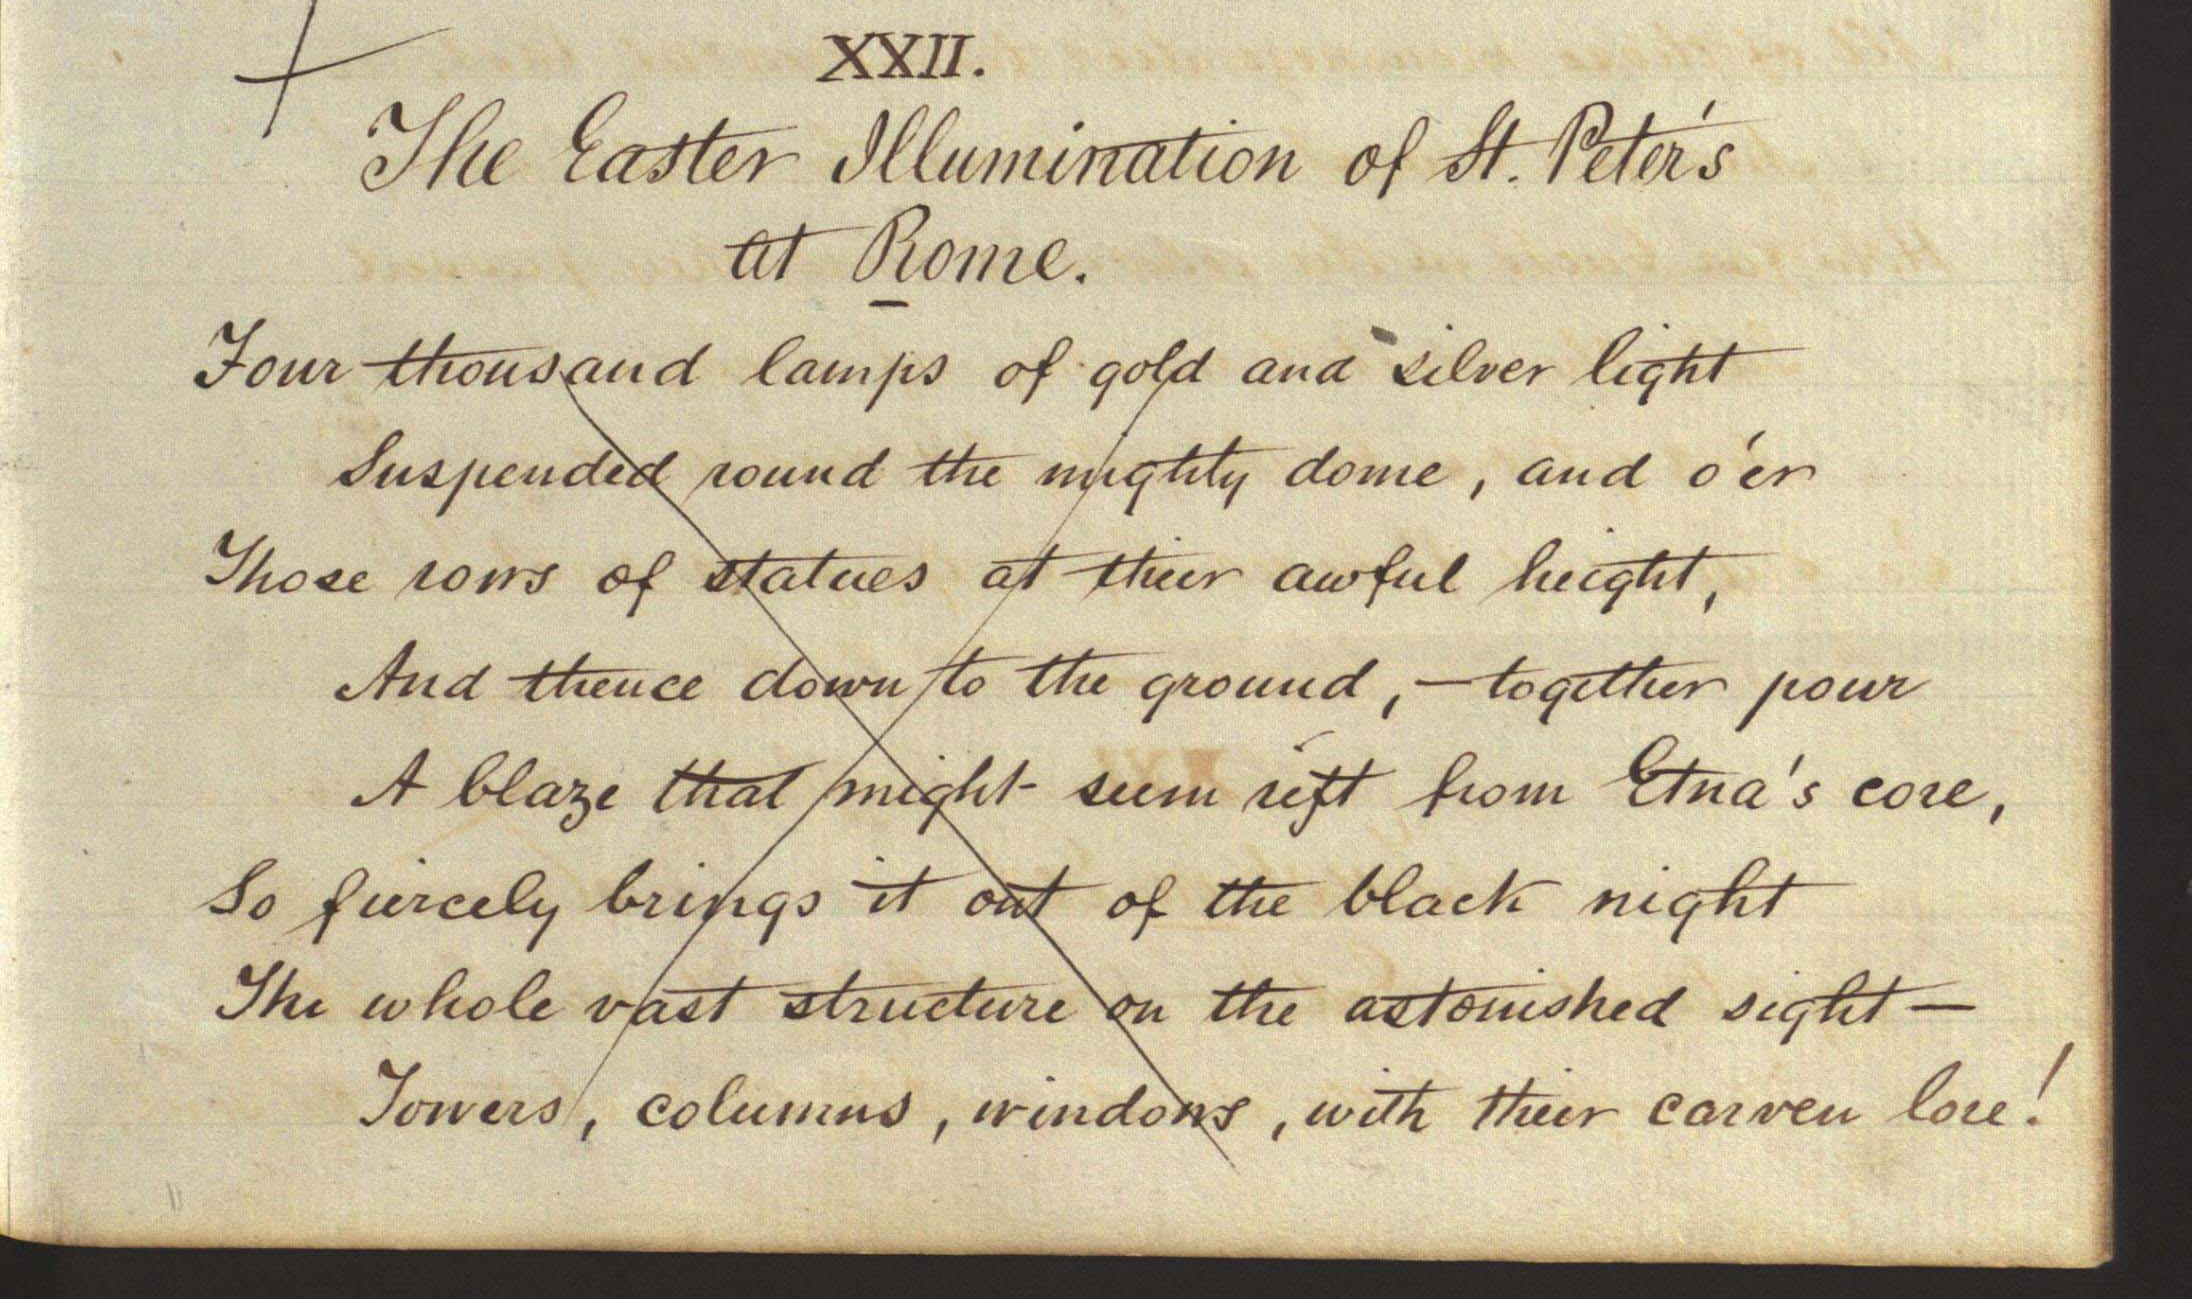 XXII.
The Easter Illumination of St. Peter's
at Rome.
Four thousand lamps of gold and silver light
Suspended round the mighty dome, and o'er
Those rows of statues at their awful height,
And thence down to the ground, — together pour
A blaze that might seem reft from Etna's core,
So fiercely brings it out of the black night
The whole vast structure on the astonished sight —
Towers, columns, windows, with their carven lore!